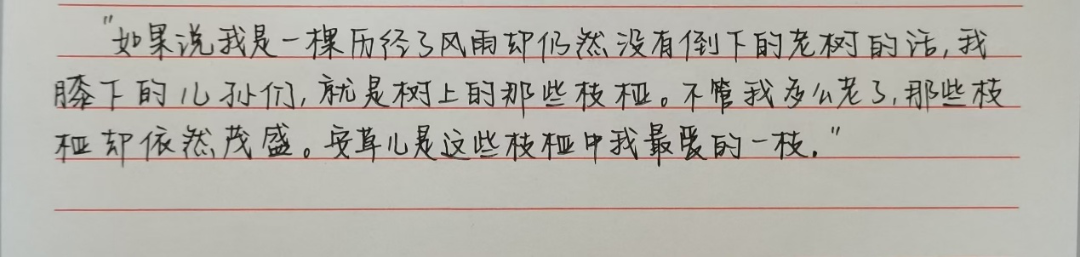 "如果说我是一棵历经了风雨却仍然没有倒下的老树的话,我
膝下的儿孙们,就是树上的那些枝桠。不管我多么老了,那些枝
桠却依然茂盛。安草儿是这些枝桠中我最爱的一枝."